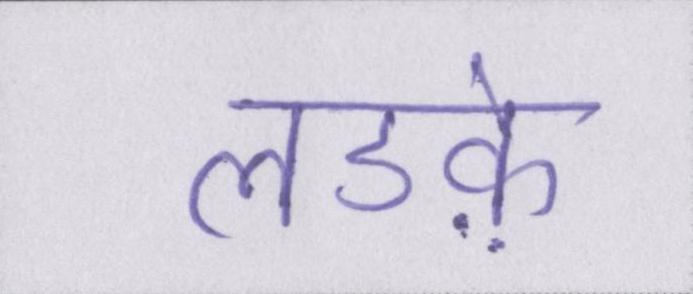 लडक़े